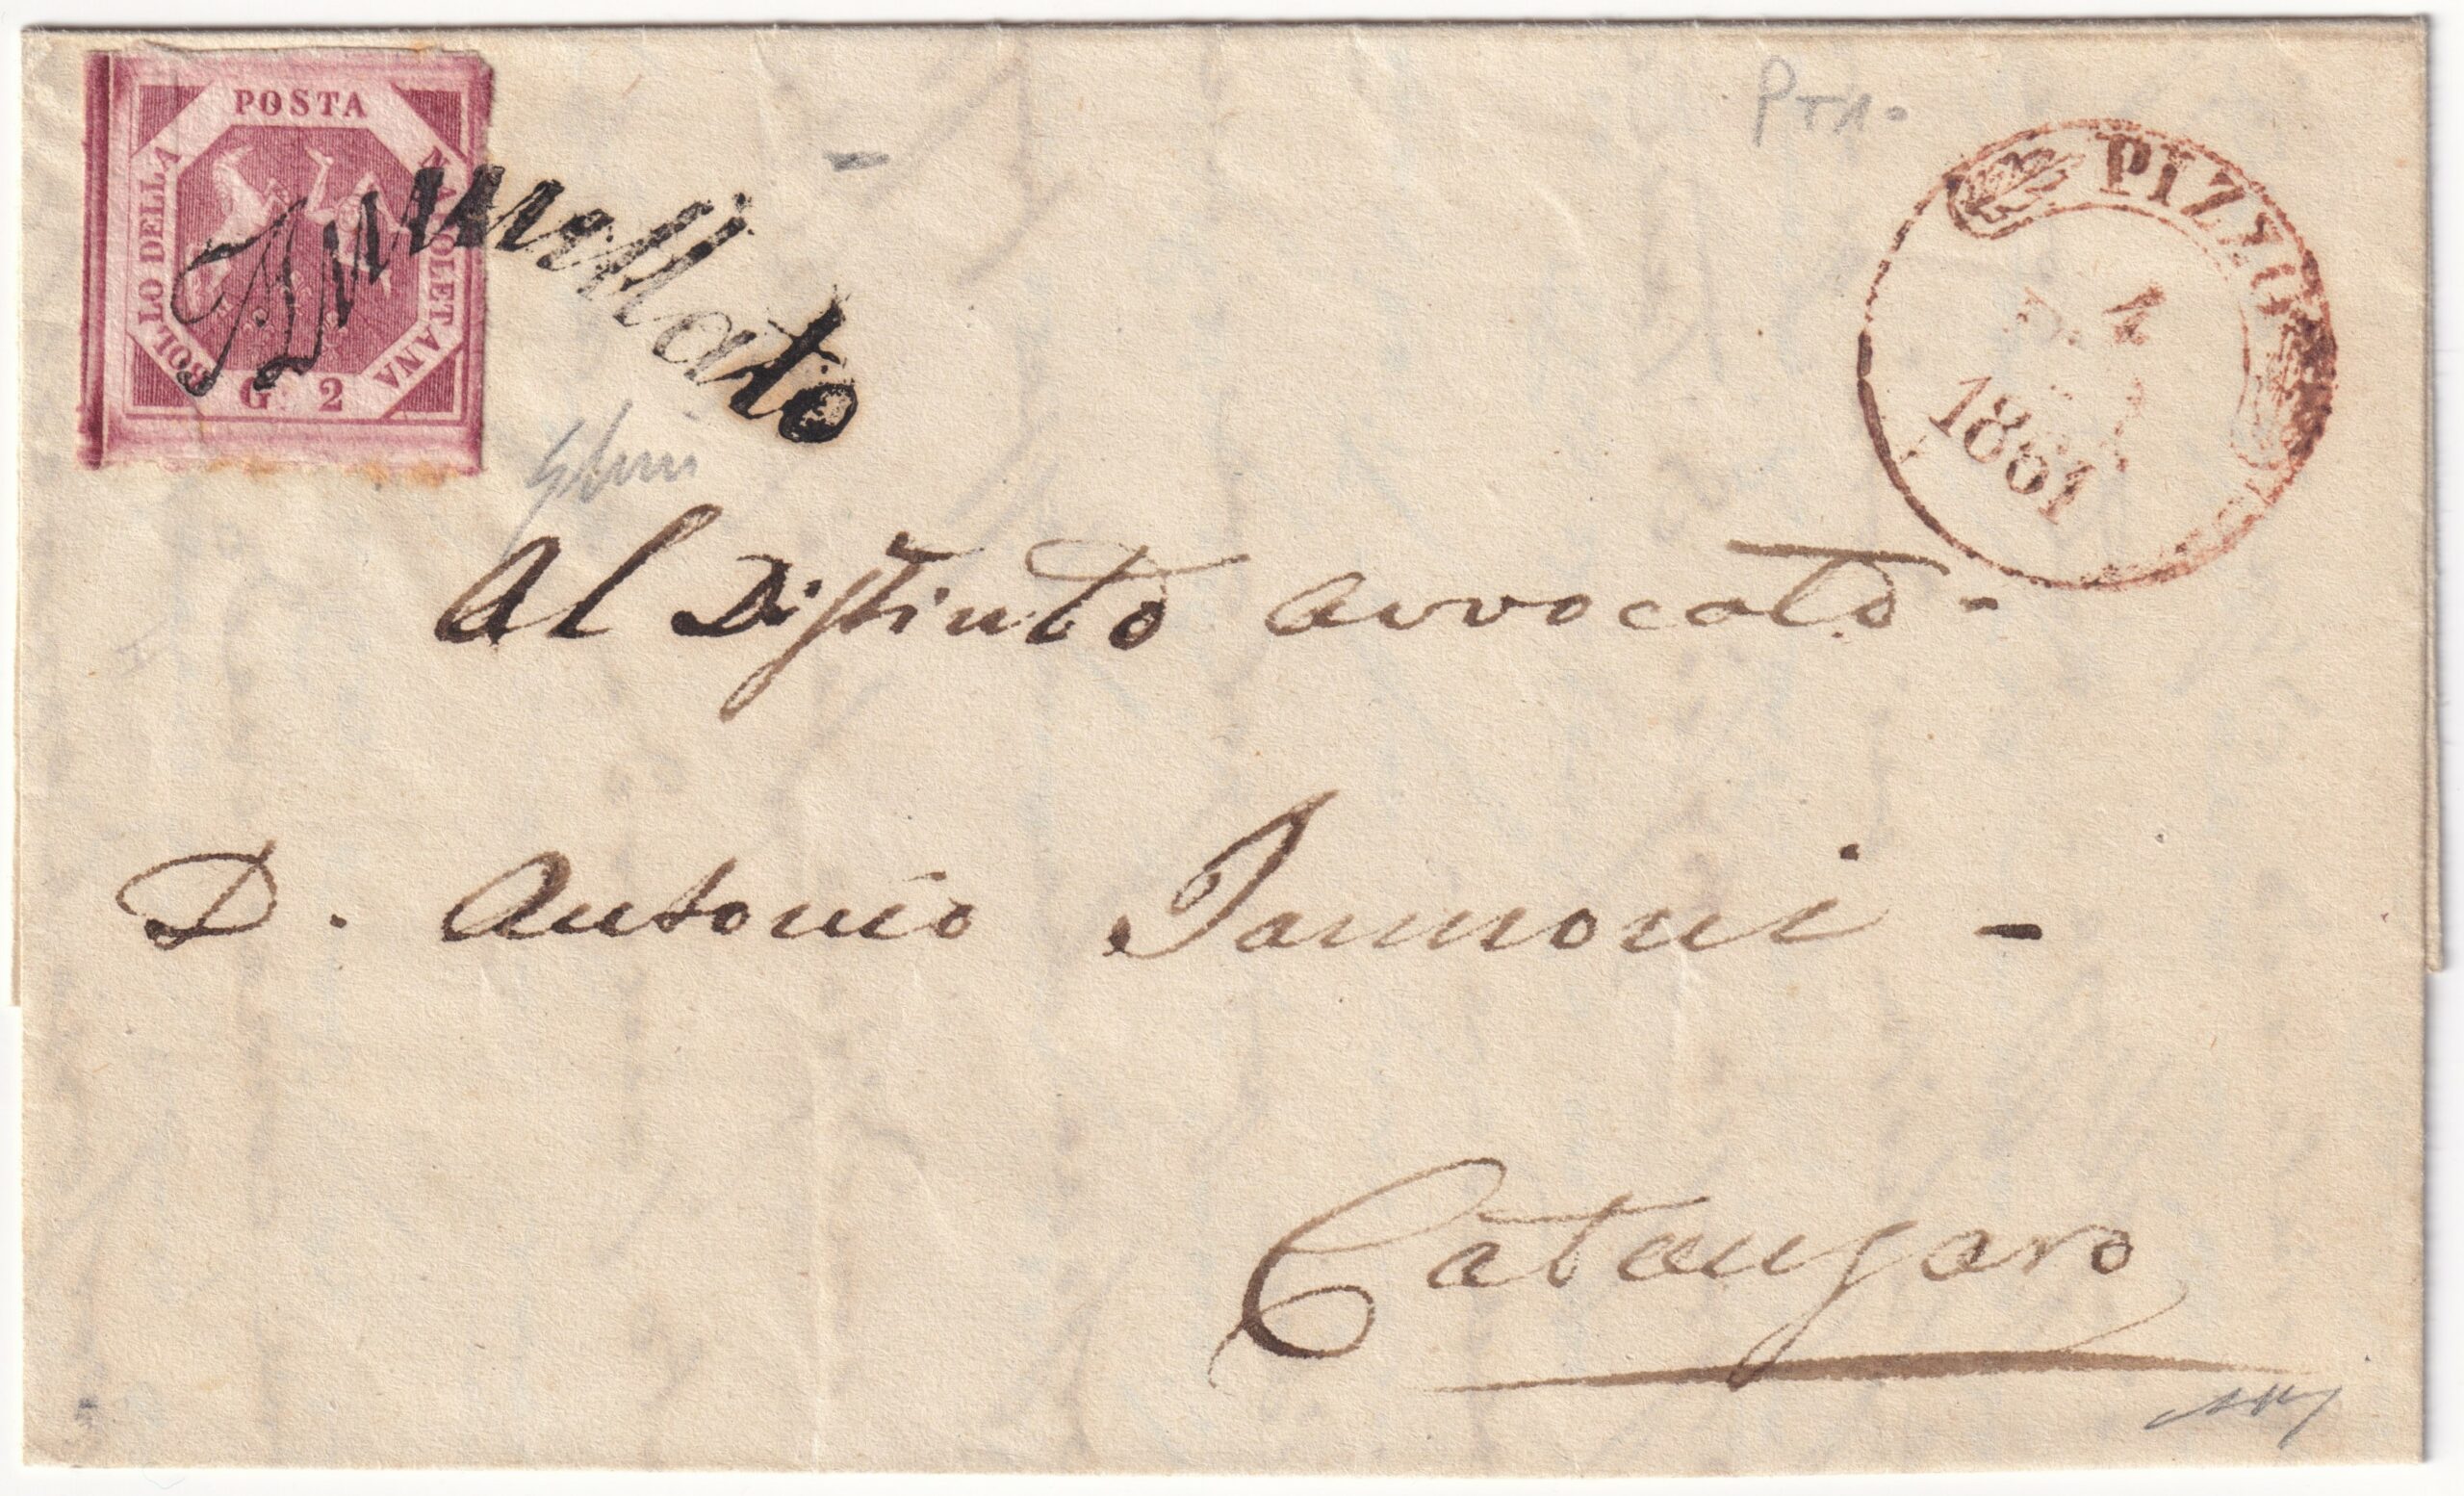 POSTA
NAPOLETANA
BOLLO DELLA
G. 2
Annullato
PIZZO
1
1861
Al Distinto avvocato -
D. Antonio Iannoni -
Catanzaro